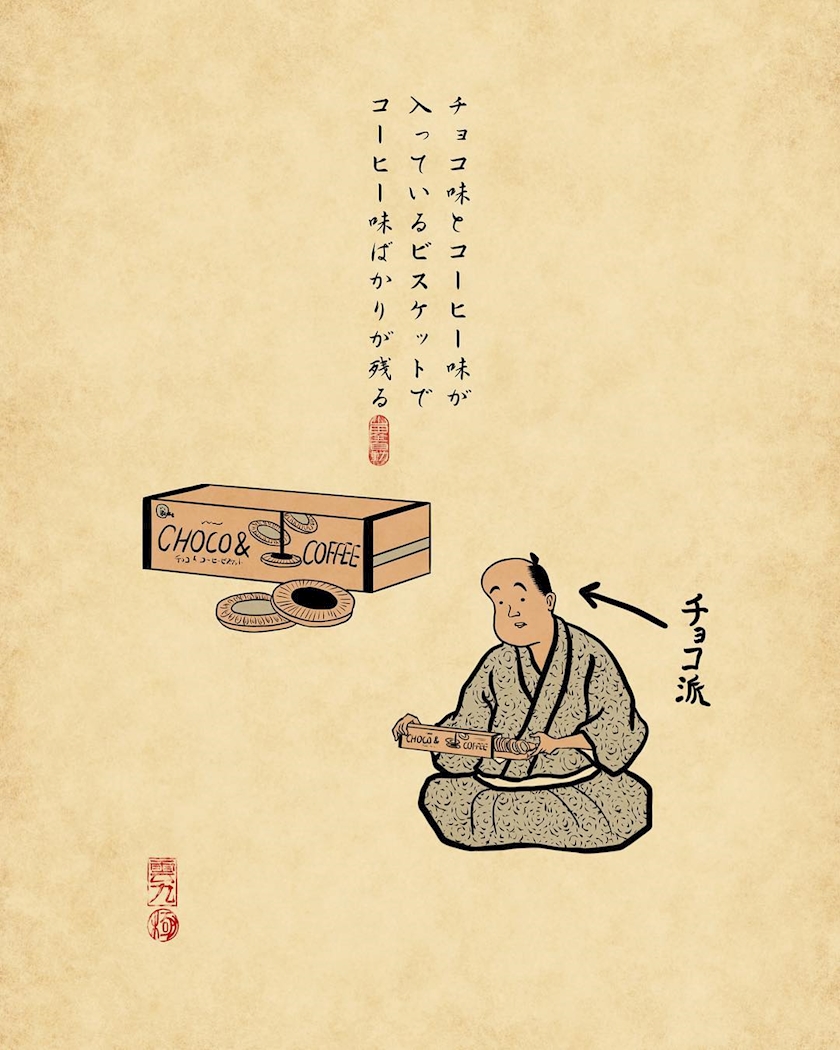 チョコ味とコーヒー味が
入っているビスケットで
コーヒー味ばかりが残る
CHOCO& COFFEE
チョコ派
CHOCO & COFFEE